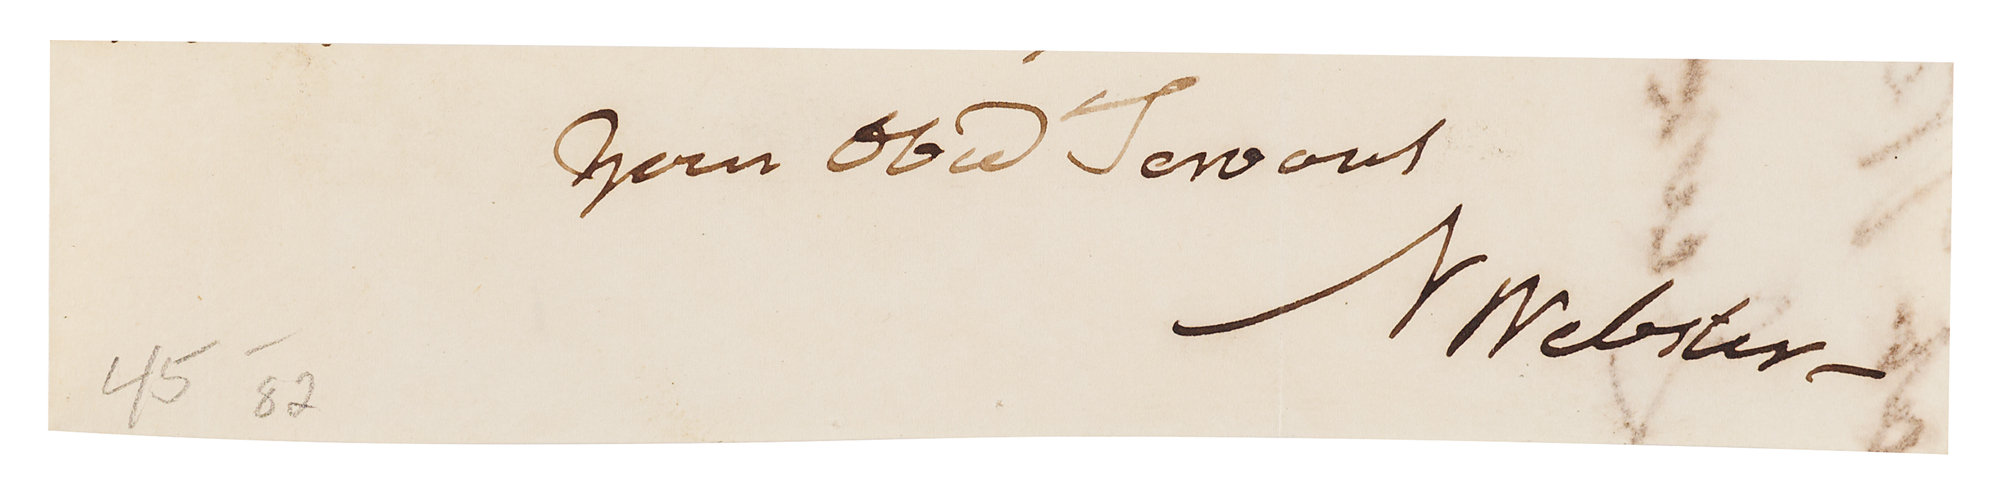 Your Obed Servant
N Webster
45 –
82